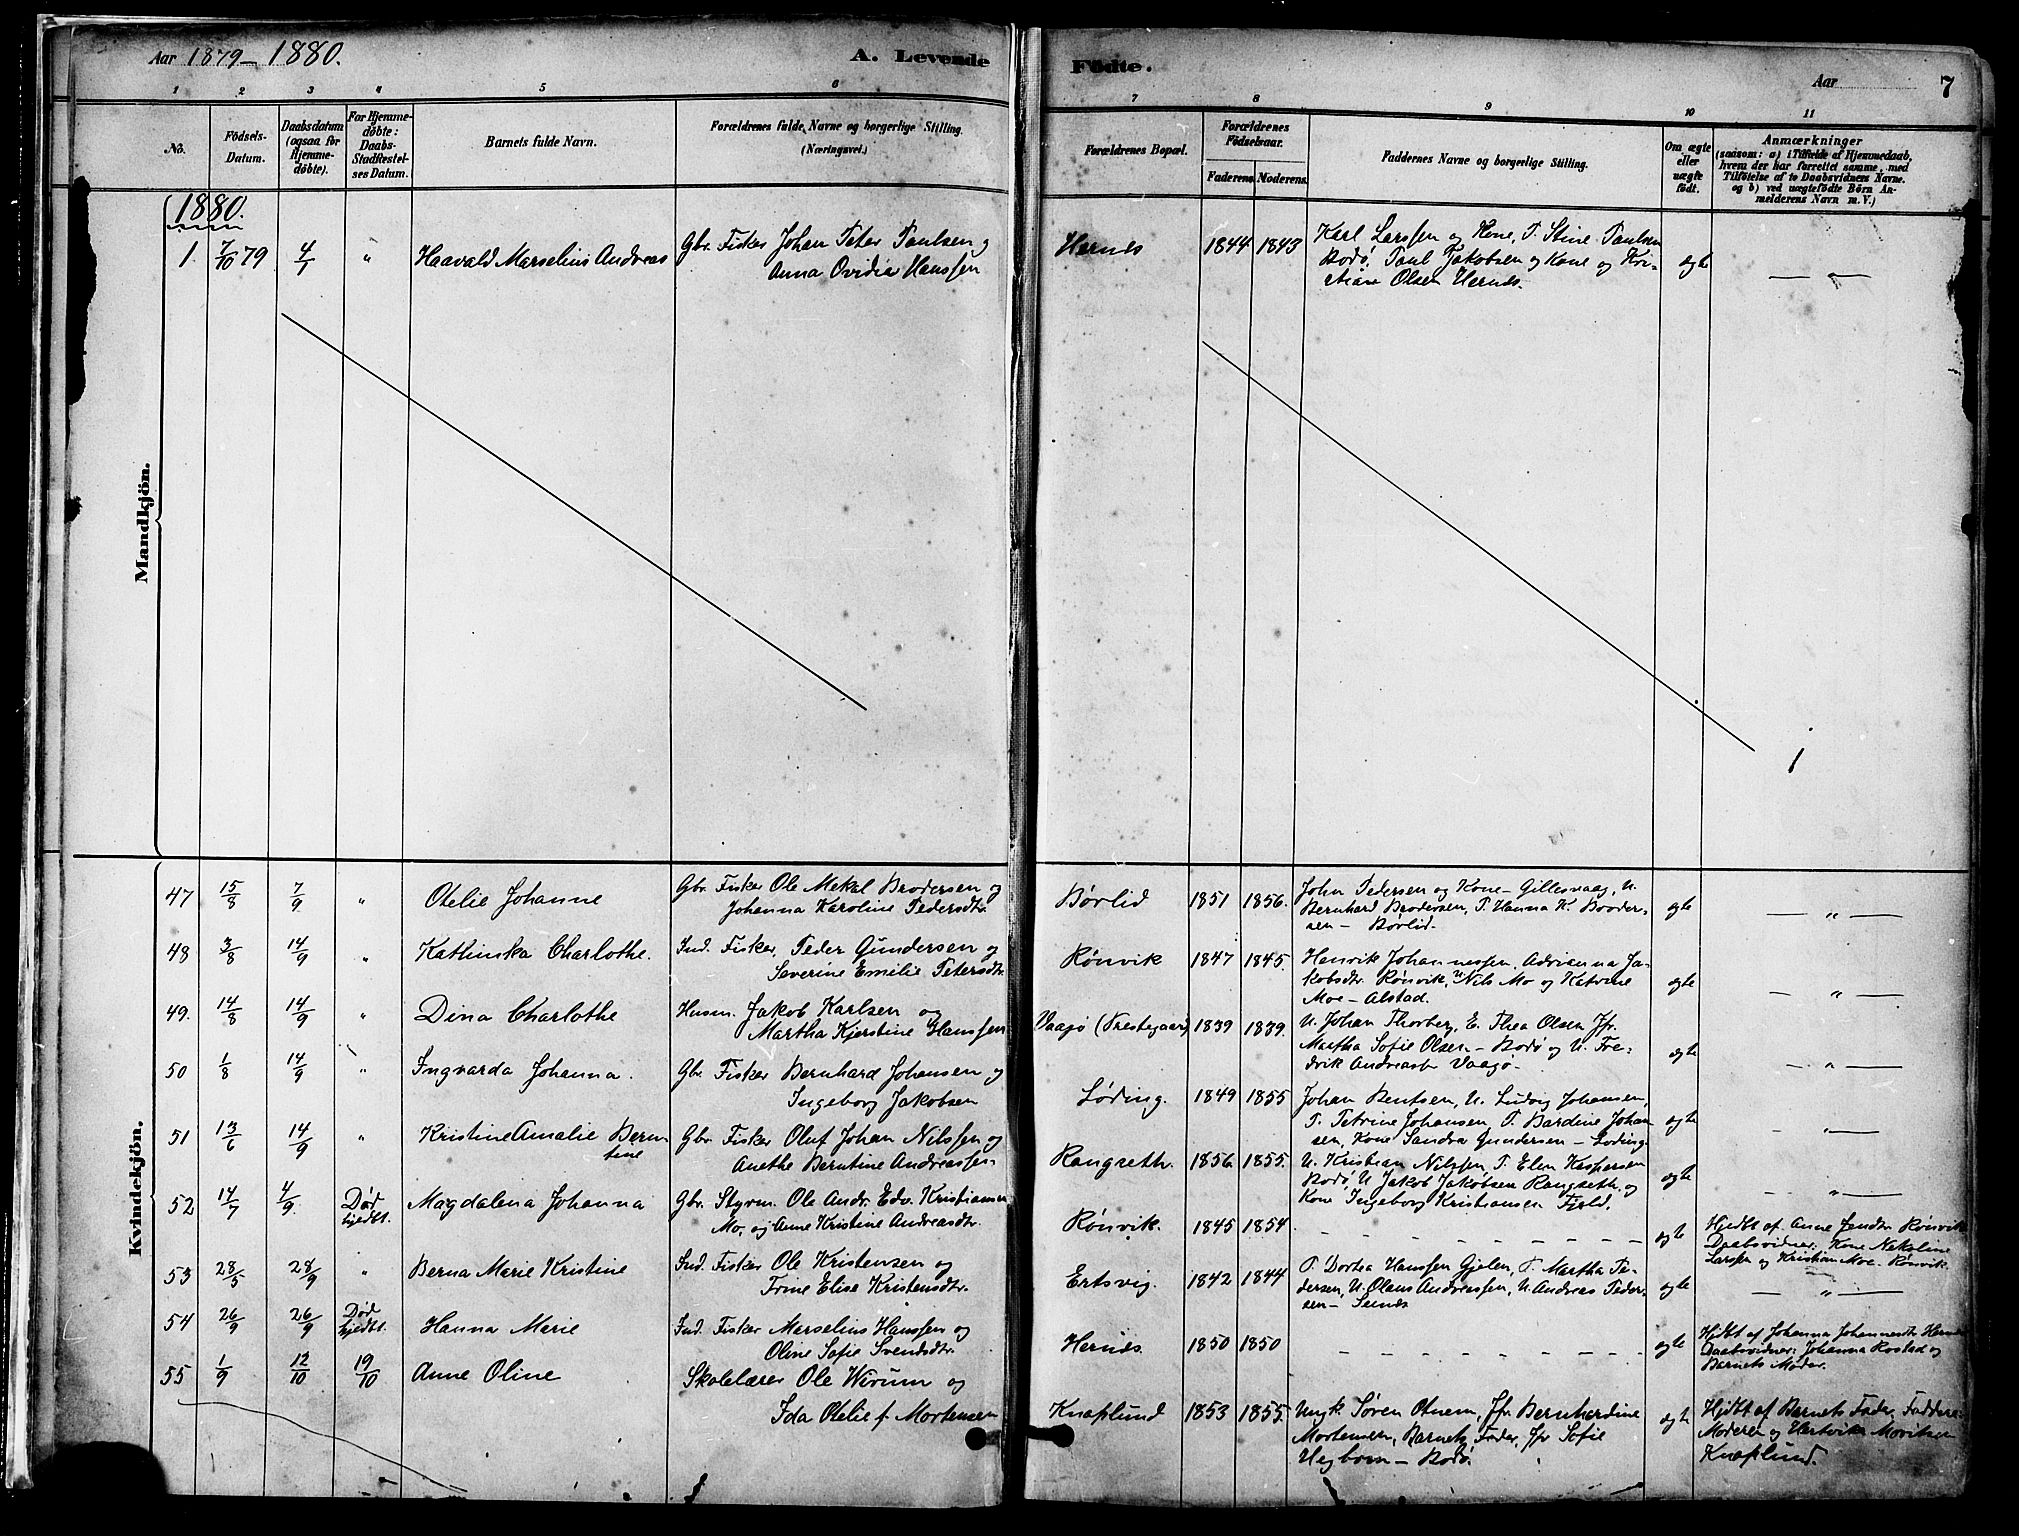 Aar 1879–1880.
A. Levende
Fødte.
Aar
7
1 2 3 4 5 6
7 8 9 10 11
No.
Fødsels-
Datum.
Daabsdatum
(ogsaa for
Hjemme-
døbte).
For Hjemme-
døbte:
Daabs-
Stadfæstel-
ses Datum.
Barnets fulde Navn.
Forældrenes fulde Navne og borgerlige Stilling.
(Næringsvei.)
Forældrenes Bopæl.
Forældrenes
Fødselsaar.
Faderens. Moderens.
Faddernes Navne og borgerlige Stilling.
Om ægte
eller
uægte
født.
Anmærkninger
(saasom: a) i Tilfælde af Hjemmedaab,
hvem der har forrettet samme, med
Tilføielse af to Daabsvidners Navne.
og b) ved uægtefødte Børn An-
melderens Navn m. V.)
Mandkjön.
1880.
1. 7/10 79 4/1 " Haavald Marselius Andreas
Gbr. Fisker Johan Peter Paulsen og
Anna Ovidia Hanssen
Hernes 1844 1843
Karl Larssen og Kone, P. Stine Paulsen
Bodø, Paul Jakobsen og Kone og Kri-
stiane Olsen Hernes.
ægte — " —
Kvindekjön.
47 15/8 7/9 " Otelie Johanne
Gbr. Fisker Ole Mekal Brodersen og
Johanna Karoline Pedersdtr.
Børlid 1851 1856.
John Pedersen og Kone – Gillesvaag, U.
Bernhard Brodersen, P. Hanna K. Broder-
sen – Børlid.
ægte — " —
48 3/8 14/9 " Kathinka Charlothe.
Ind. Fisker, Peder Gundersen og
Severine Emilie Petersdtr.
Rønvik 1847 1845.
Henrik Johannessen, Adrianna Ja-
kobsdtr. Rønvik, U Nils Mo og Katrine
Moe – Alstad.
ægte — " —
49. 14/8 14/9 " Dina Charlothe
Husm. Jakob Karlsen og
Martha Kjerstine Hanssen
Vaagø (Prestegaard) 1839 1839.
U. Johan Thorberg, E. Thea Olsen Jfr.
Martha Sofie Olsen – Bodø og U. Fre-
drik Andreas Vaagø.
ægte — " —
50 1/8 14/9 " Ingvarda Johanna.
Gbr. Fisker Bernhard Johansen og
Ingeborg Jakobsen
Løding. 1849 1855
Johan Bentsen, U. Ludvig Johansen,
P. Petrine Johansen, P. Bardine Johan-
sen, Kone Sandra Gundersen – Løding.
ægte — " —
51 13/6 14/9 " Kristine Amalie Bern-
tine
Gbr. Fisker Oluf Johan Nilssen og
Anethe Berntine Andreassen.
Rangseth. 1856. 1855.
U. Kristian Nilssen, P. Elen Kaspersen
Bodø, U Jakob Jakobsen Rangseth. og
Kone Ingeborg Kristiansen Fjeld.
ægte — " —
52 14/7 4/9. Død
hjedbt. Magdalena Johanna
Gbr. Styrm. Ole Andr. Edv. Kristiansen
Mo, og Anne Kristine Andreasdtr.
Rønvik. 1845 1854
– – – – – – – – ægte
Hjdbt af. Anne Jensdtr Rønvik
Daabsvidner: Kone Nekoline
Larsen og Kristian Moe – Rønvik.
53 28/5 28/9 " Berna Marie Kristine
Ind. Fisker Ole Kristensen og
Trine Elise Kristensdtr.
Ertsvig. 1842 1844
P. Dortea Hanssen Gjelen, P. Martha Pe-
dersen, U. Olaus Andreassen, U. Andreas Peder-
sen – Seines
ægte — " —
54 26/9 26/9 Død
hjedbt. Hanna Marie
Ind. Fisker Marselius Hanssen og
Oline Sofie Svendsdtr.
Hernes. 1850 1850
– – – – – – – – ægte
Hjdbt af Johanna Johannesdtr Hernes
Daabsvidner: Johanna Rostad og
Barnets Moder.
55 1/9 12/10 19/10 Anne Oline
Skolelærer Ole Wirum og
Ida Otelie f. Mortensen
Knaplund 1853 1855.
Ungk. Søren Otnem, Jfr. Bernhardine
Mortensen, Barnets Fader, Jfr Sofie
Hegborn – Bodø.
ægte
Hjdbt af Barnets Fader, Faddere:
Moderen og Hartvika Movitsen
Knaplund.